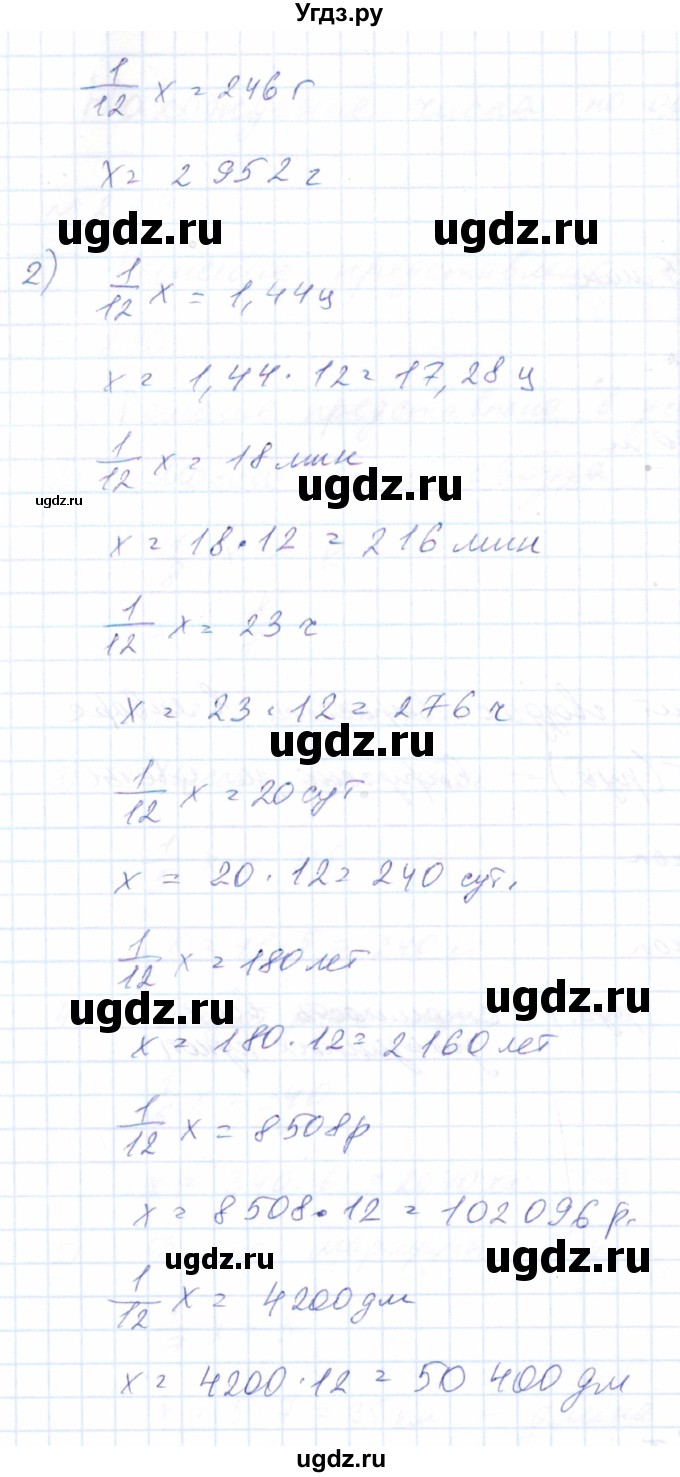 Угдз.ру
1/12 x = 246 г
x = 2 952 г
ugdz.ru ugdz.ru
2) 1/12 x = 1,44 ц
x = 1,44 · 12 = 17,28 ц
1/12 x = 18 мин
ugdz.ru ugdz.ru
x = 18 · 12 = 216 мин
1/12 x = 23 ч
x = 23 · 12 = 276 ч
ugdz.ru
1/12 x = 20 сут.
x = 20 · 12 = 240 сут.
1/12 x = 180 лет
ugdz.ru ugdz.ru
x = 180 · 12 = 2160 лет
1/12 x = 8508 р
x = 8508 · 12 = 102 096 р.
ugdz.ru ugdz.ru
1/12 x = 4200 дм
x = 4200 · 12 = 50 400 дм
ugdz.ru